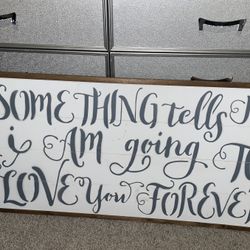 SOMETHING tells
i AM going TO
LOVE you FOREVER